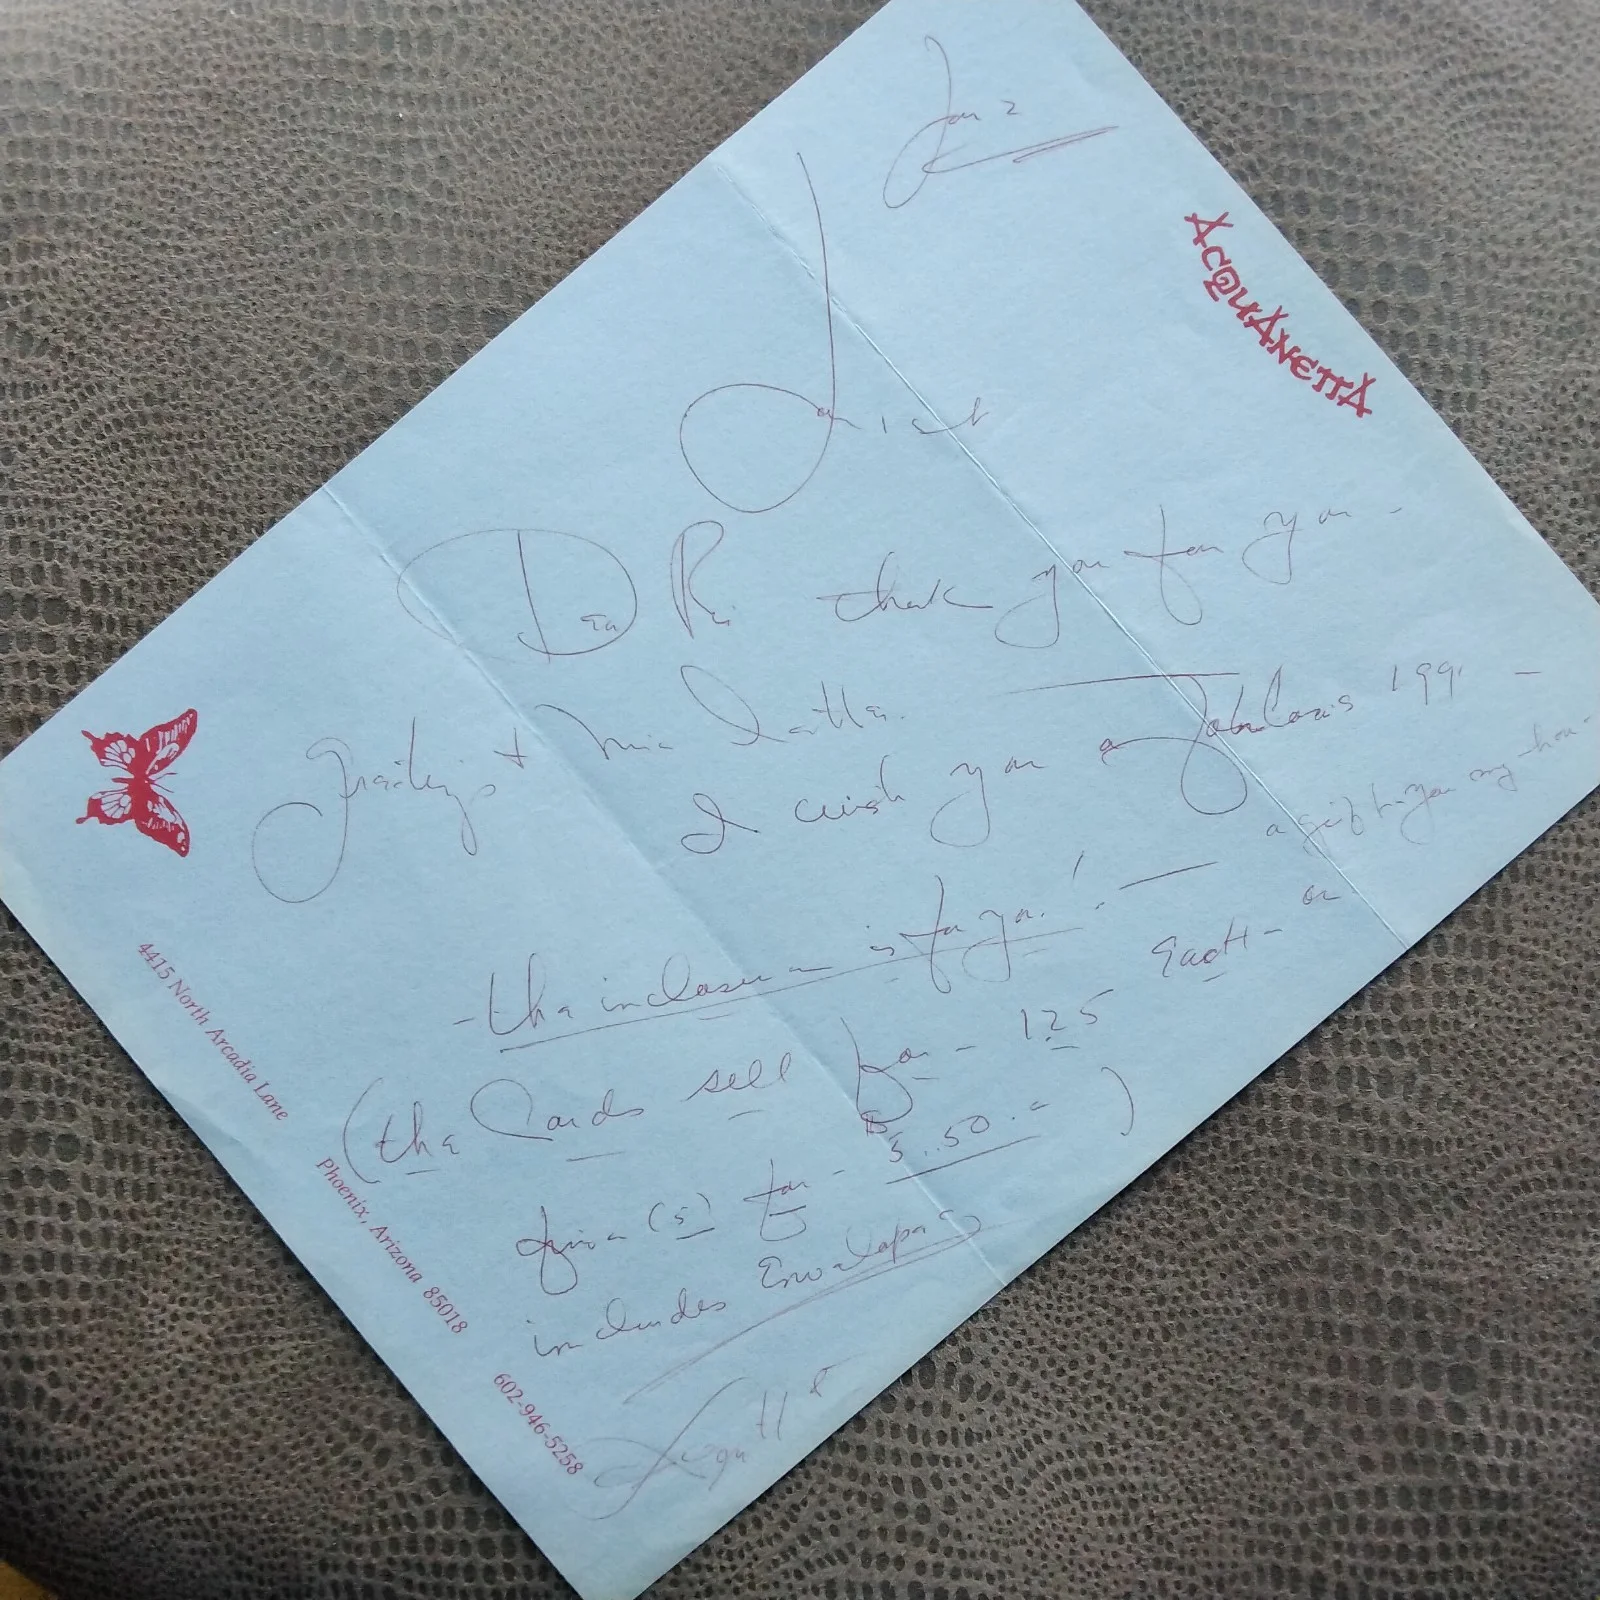 ACQUANETTA
Jan 2
thank you for you -
Greetings + nice letter.
I wish you a fabulous 1991 -
- the inclosure is for you! -
a gift to you my
(the Cards sell for - 125 Each - or
five (5) for - $5.50 - )
includes Envelopes
4415 North Arcadia Lane
Phoenix, Arizona 85018
602-946-5258